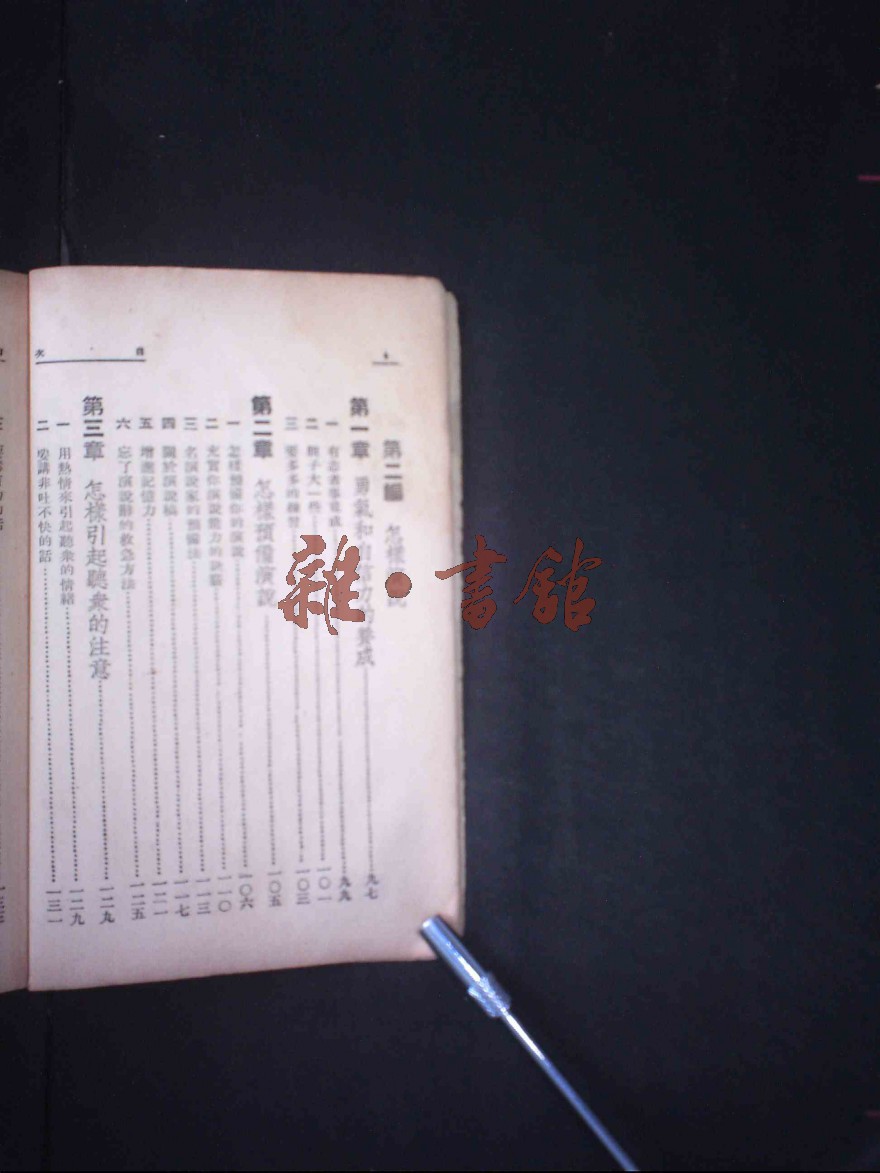 目次
第二編 怎樣 說
第一章 勇氣和自信力的養成……九七
一 有志者事竟成……九九
二 膽子大一些……一〇一
三 要多多的練習……一〇三
第二章 怎樣預備演說……一〇五
一 怎樣預備你的演說……一〇六
二 充實你演說能力的訣竅……一一〇
三 名演說家的預備法……一一三
四 關於演說稿……一一七
五 增進記憶力……一二一
六 忘了演說辭的救急方法……一二五
第三章 怎樣引起聽衆的注意……一二九
一 用熱情來引起聽衆的情緒……一二九
二 要講非吐不快的話……一三一
雜·書館